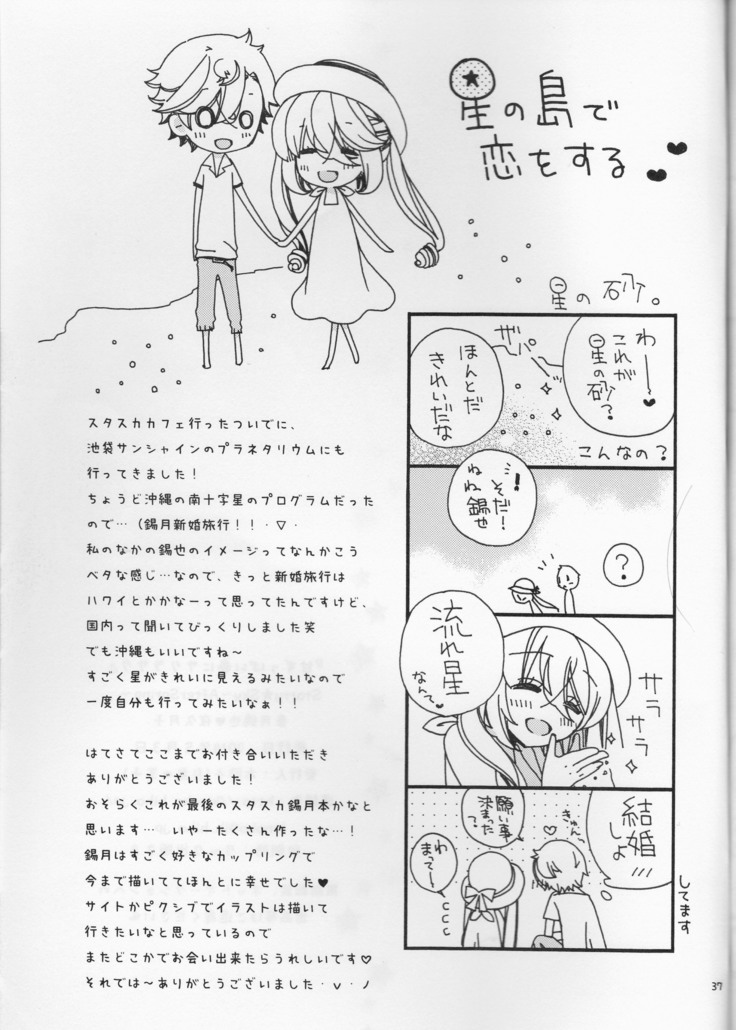 星の島で
恋をする
星の砂。
わー
これが
星の砂?
ザパ。
ほんとだ
きれいだな
こんなの?
そだ!
ねね錫せ
?
流れ星
なんて
サラ
サラ
結婚
しよ
きゅん
願い事
決まった
?
わ
まってー
してます
スタスカカフェ行ったついでに、
池袋サンシャインのプラネタリウムにも
行ってきました!
ちょうど沖縄の南十字星のプログラムだった
ので…(錫月新婚旅行!!・▽・
私のなかの錫也のイメージってなんかこう
ベタな感じ…なので、きっと新婚旅行は
ハワイとかかなーって思ってたんですけど、
国内って聞いてびっくりしました笑
でも沖縄もいいですね~
すごく星がきれいに見えるみたいなので
一度自分も行ってみたいなぁ!!
はてさてここまでお付き合いいただき
ありがとうございました!
おそらくこれが最後のスタスカ錫月本かなと
思います… いやーたくさん作ったな…!
錫月はすごく好きなカップリングで
今まで描いててほんとに幸せでした♥
サイトかピクシブでイラストは描いて
行きたいなと思っているので
またどこかでお会い出来たらうれしいです♡
それでは~ありがとうございました・v・ノ
37